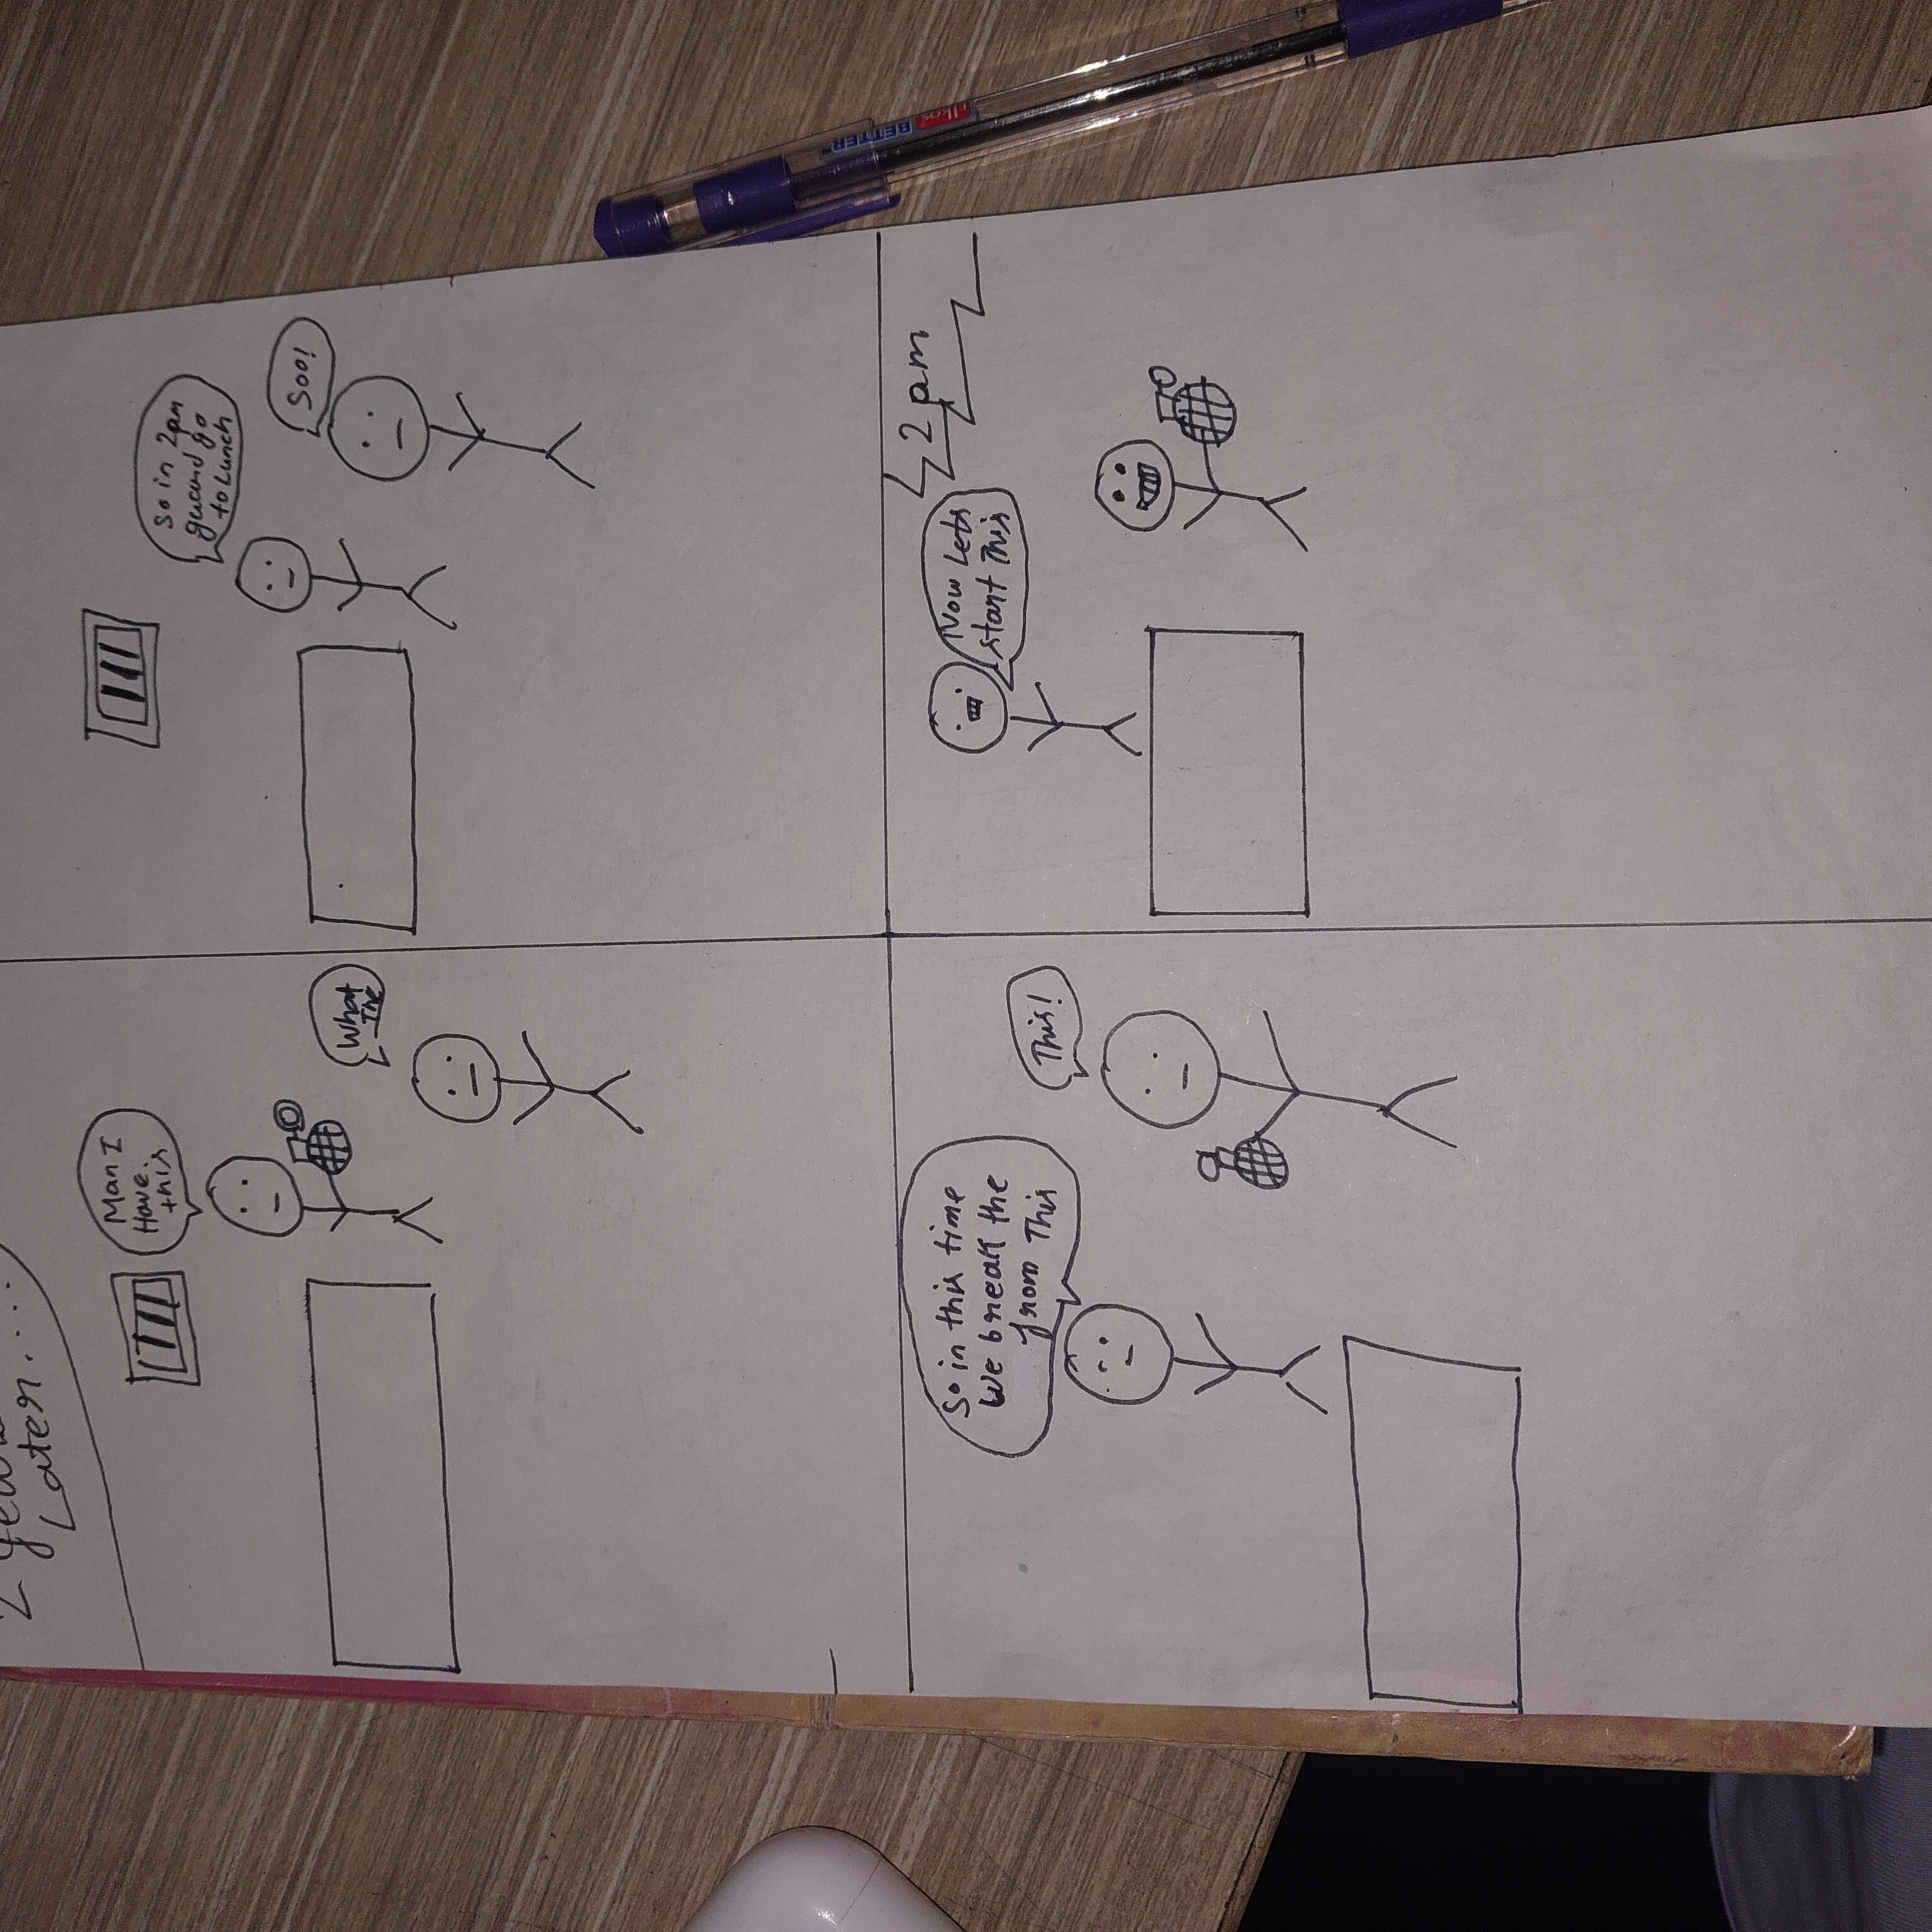 2 years
Later....
Man I
Have.
this
What
The
So in 2pm
guard go
to Lunch
Soo!
So in this time
We break the
from This
This!
2 pm
Now Lets
start This
BETTER